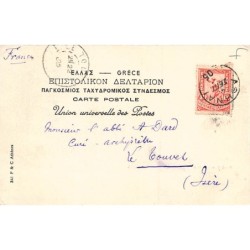 France
ΕΛΛΑΣ — GRÈCE
ΕΠΙΣΤΟΛΙΚΟΝ ΔΕΛΤΑΡΙΟΝ
ΠΑΓΚΟΣΜΙΟΣ ΤΑΧΥΔΡΟΜΙΚΟΣ ΣΥΝΔΕΣΜΟΣ
CARTE POSTALE
Union universelle des Postes
Monsieur l'abbé A Dard
Curé-archiprêtre
Le Touvet
(Isère)